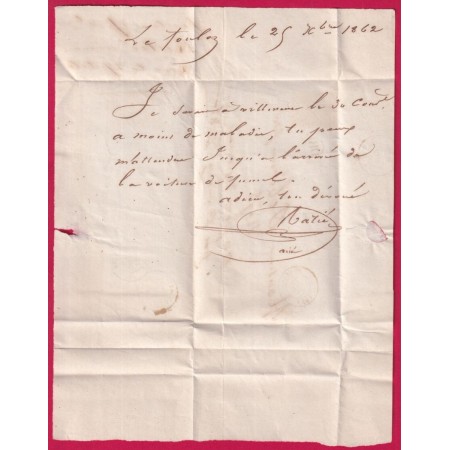 Le toulou le 25 Xbre 1862
Je serai à villeneuve le 30 Cour.t
a moins de maladie, tu peux
m'attendre Jusqu'a l'arrivé de
la voiture de fumel.
adieu, ton dévoué
Ratié
ainé